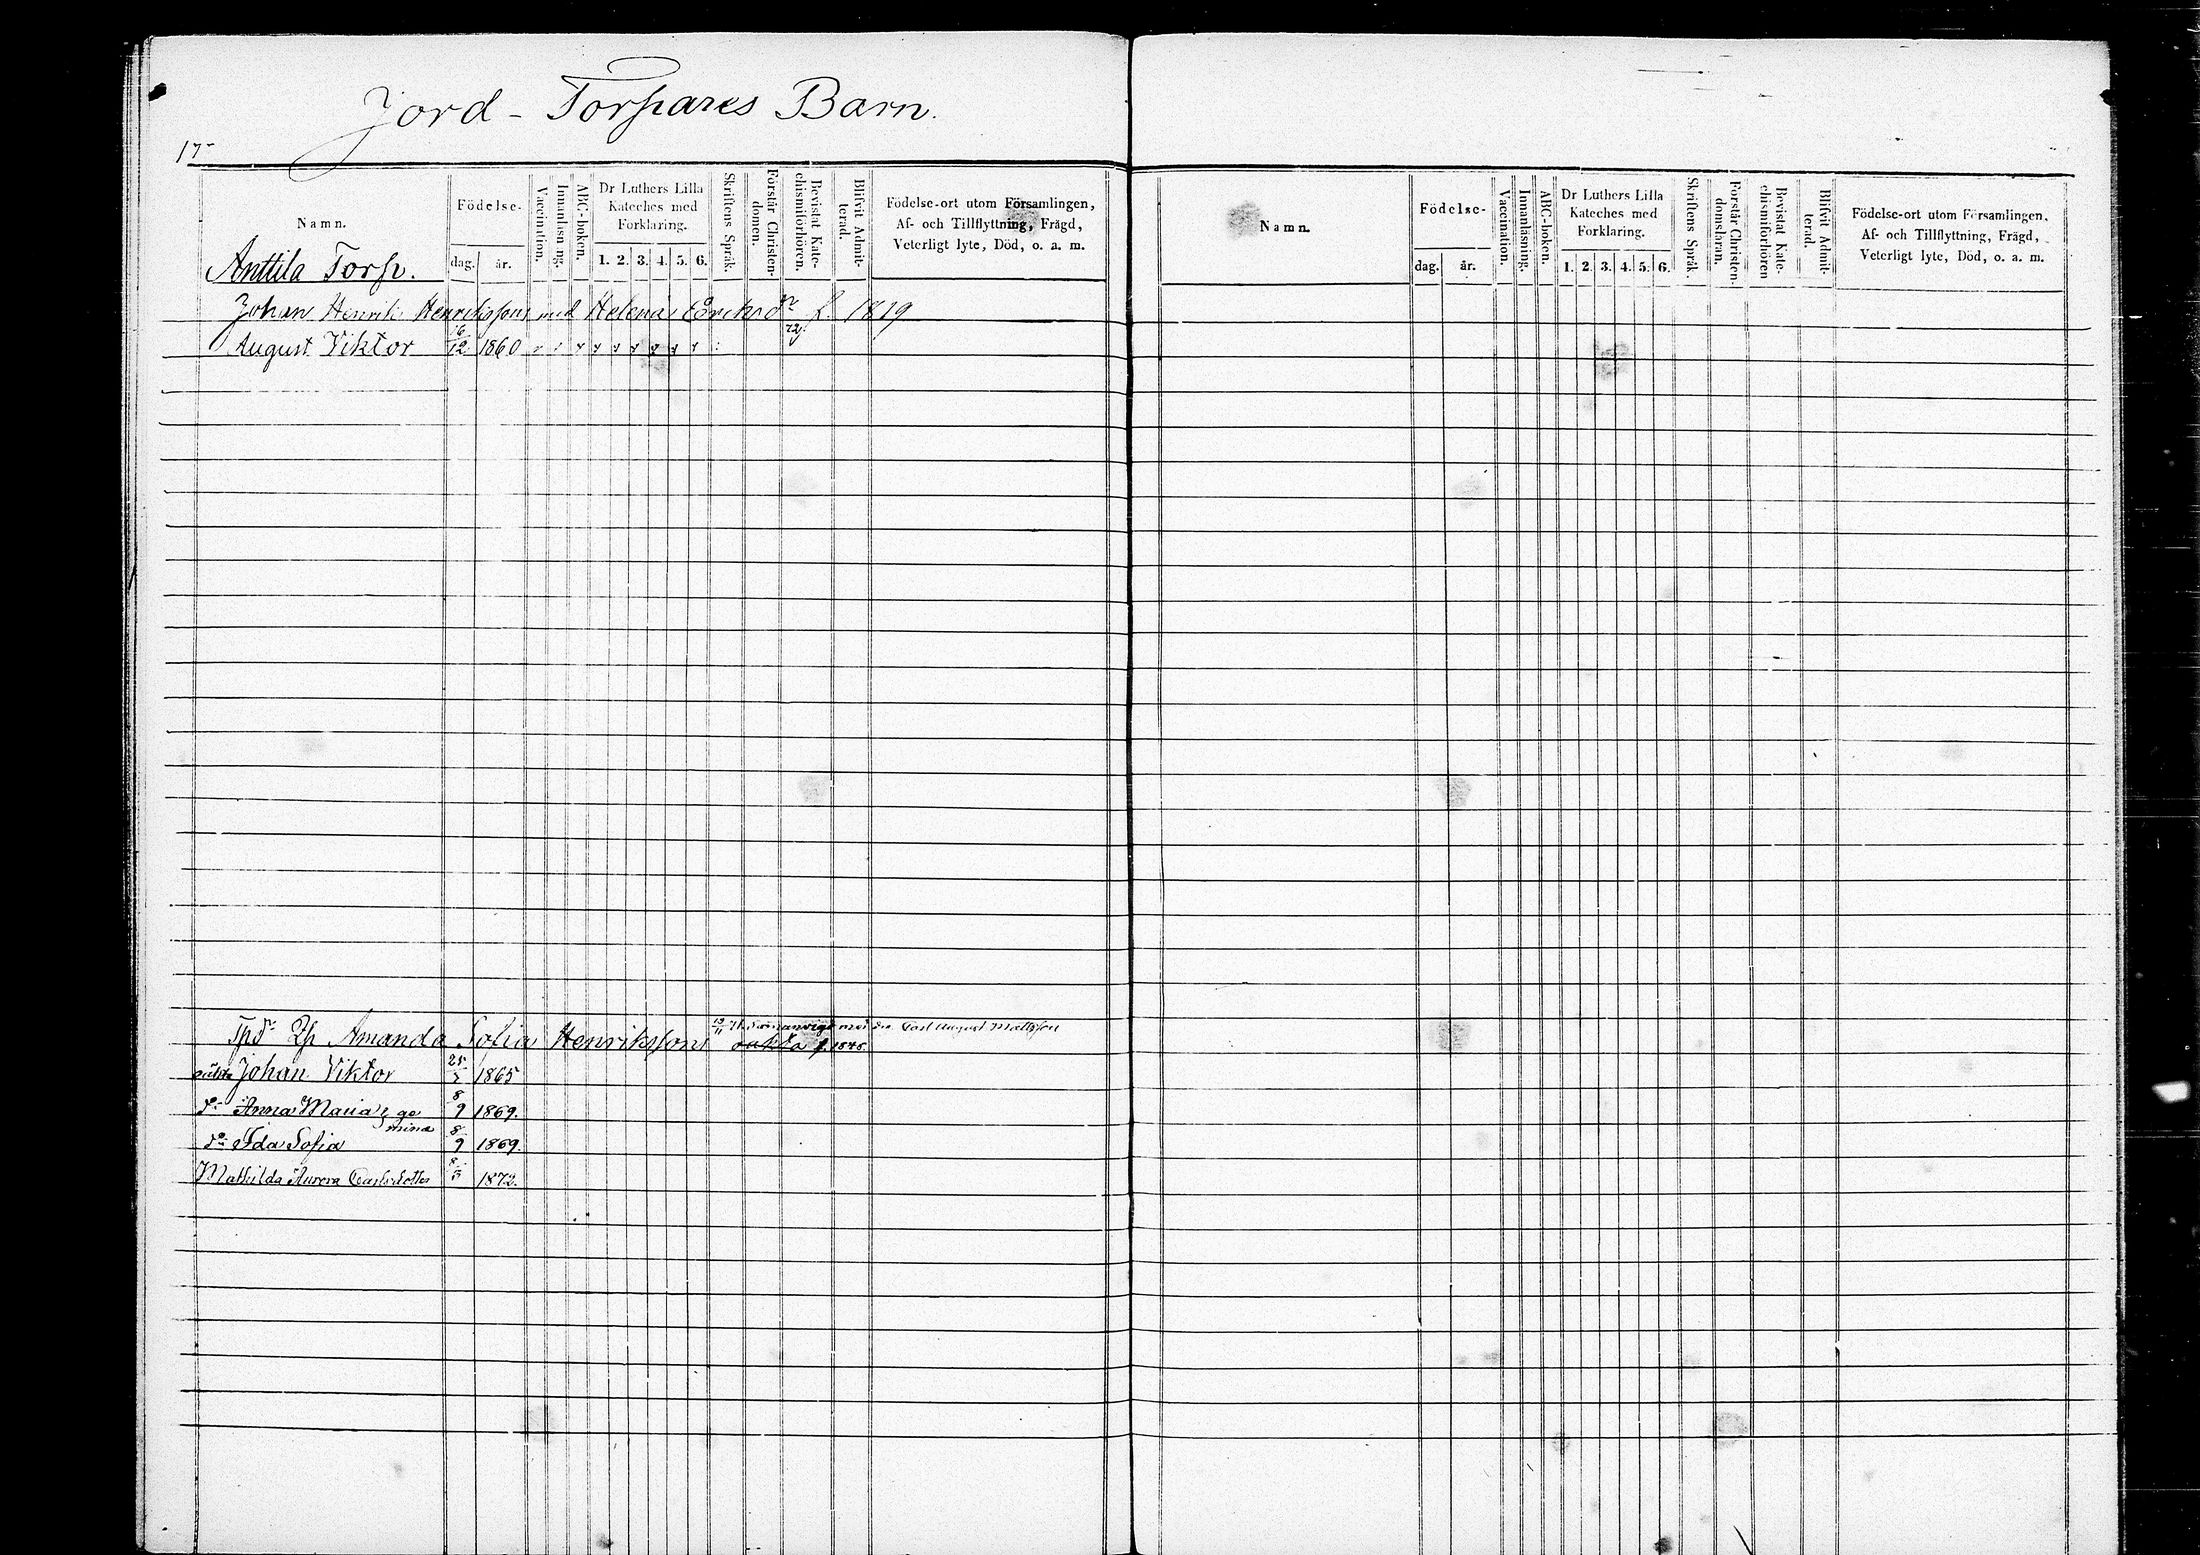 Jord - Torpares Barn.
17
Namn.
Födelse-
dag. år.
Vaccination.
Innanläsning.
ABC-boken.
Dr Luthers Lilla
Kateches med
Forklaring.
1. 2. 3. 4. 5. 6.
Skriftens Språk.
Forstår Christen-
domen.
Bevistat Kate-
chismiförhören.
Blifvit Admit-
terad.
Födelse-ort utom Församlingen,
Af- och Tillflyttning, Frägd,
Veterligt lyte, Död, o. a. m.
Anttila Torp.
Johan Henrik Henriksson med Helena f. 1819
August Viktor 16/12 1860
Tpd Amanda Sofia Henriksson
13/11 Carl August Mattsson
oäkta f. 1848.
oäkta Johan Viktor 25/5 1865
do Anna Maria 8/9 1869.
do Ida Sofia 8/9 1869.
Mathilda Aurora Carlsdotter 1872.
Namn.
Födelse-
dag. år.
Vaccination.
Innanläsning.
ABC-boken.
Dr Luthers Lilla
Kateches med
Forklaring.
1. 2. 3. 4. 5. 6.
Skriftens Språk.
Forstår Christen-
domsläran.
Bevistat Kate-
chismiförhören
Blifvit Admit-
terad.
Födelse-ort utom Församlingen,
Af- och Tillflyttning, Frägd,
Veterligt lyte, Död, o. a. m.